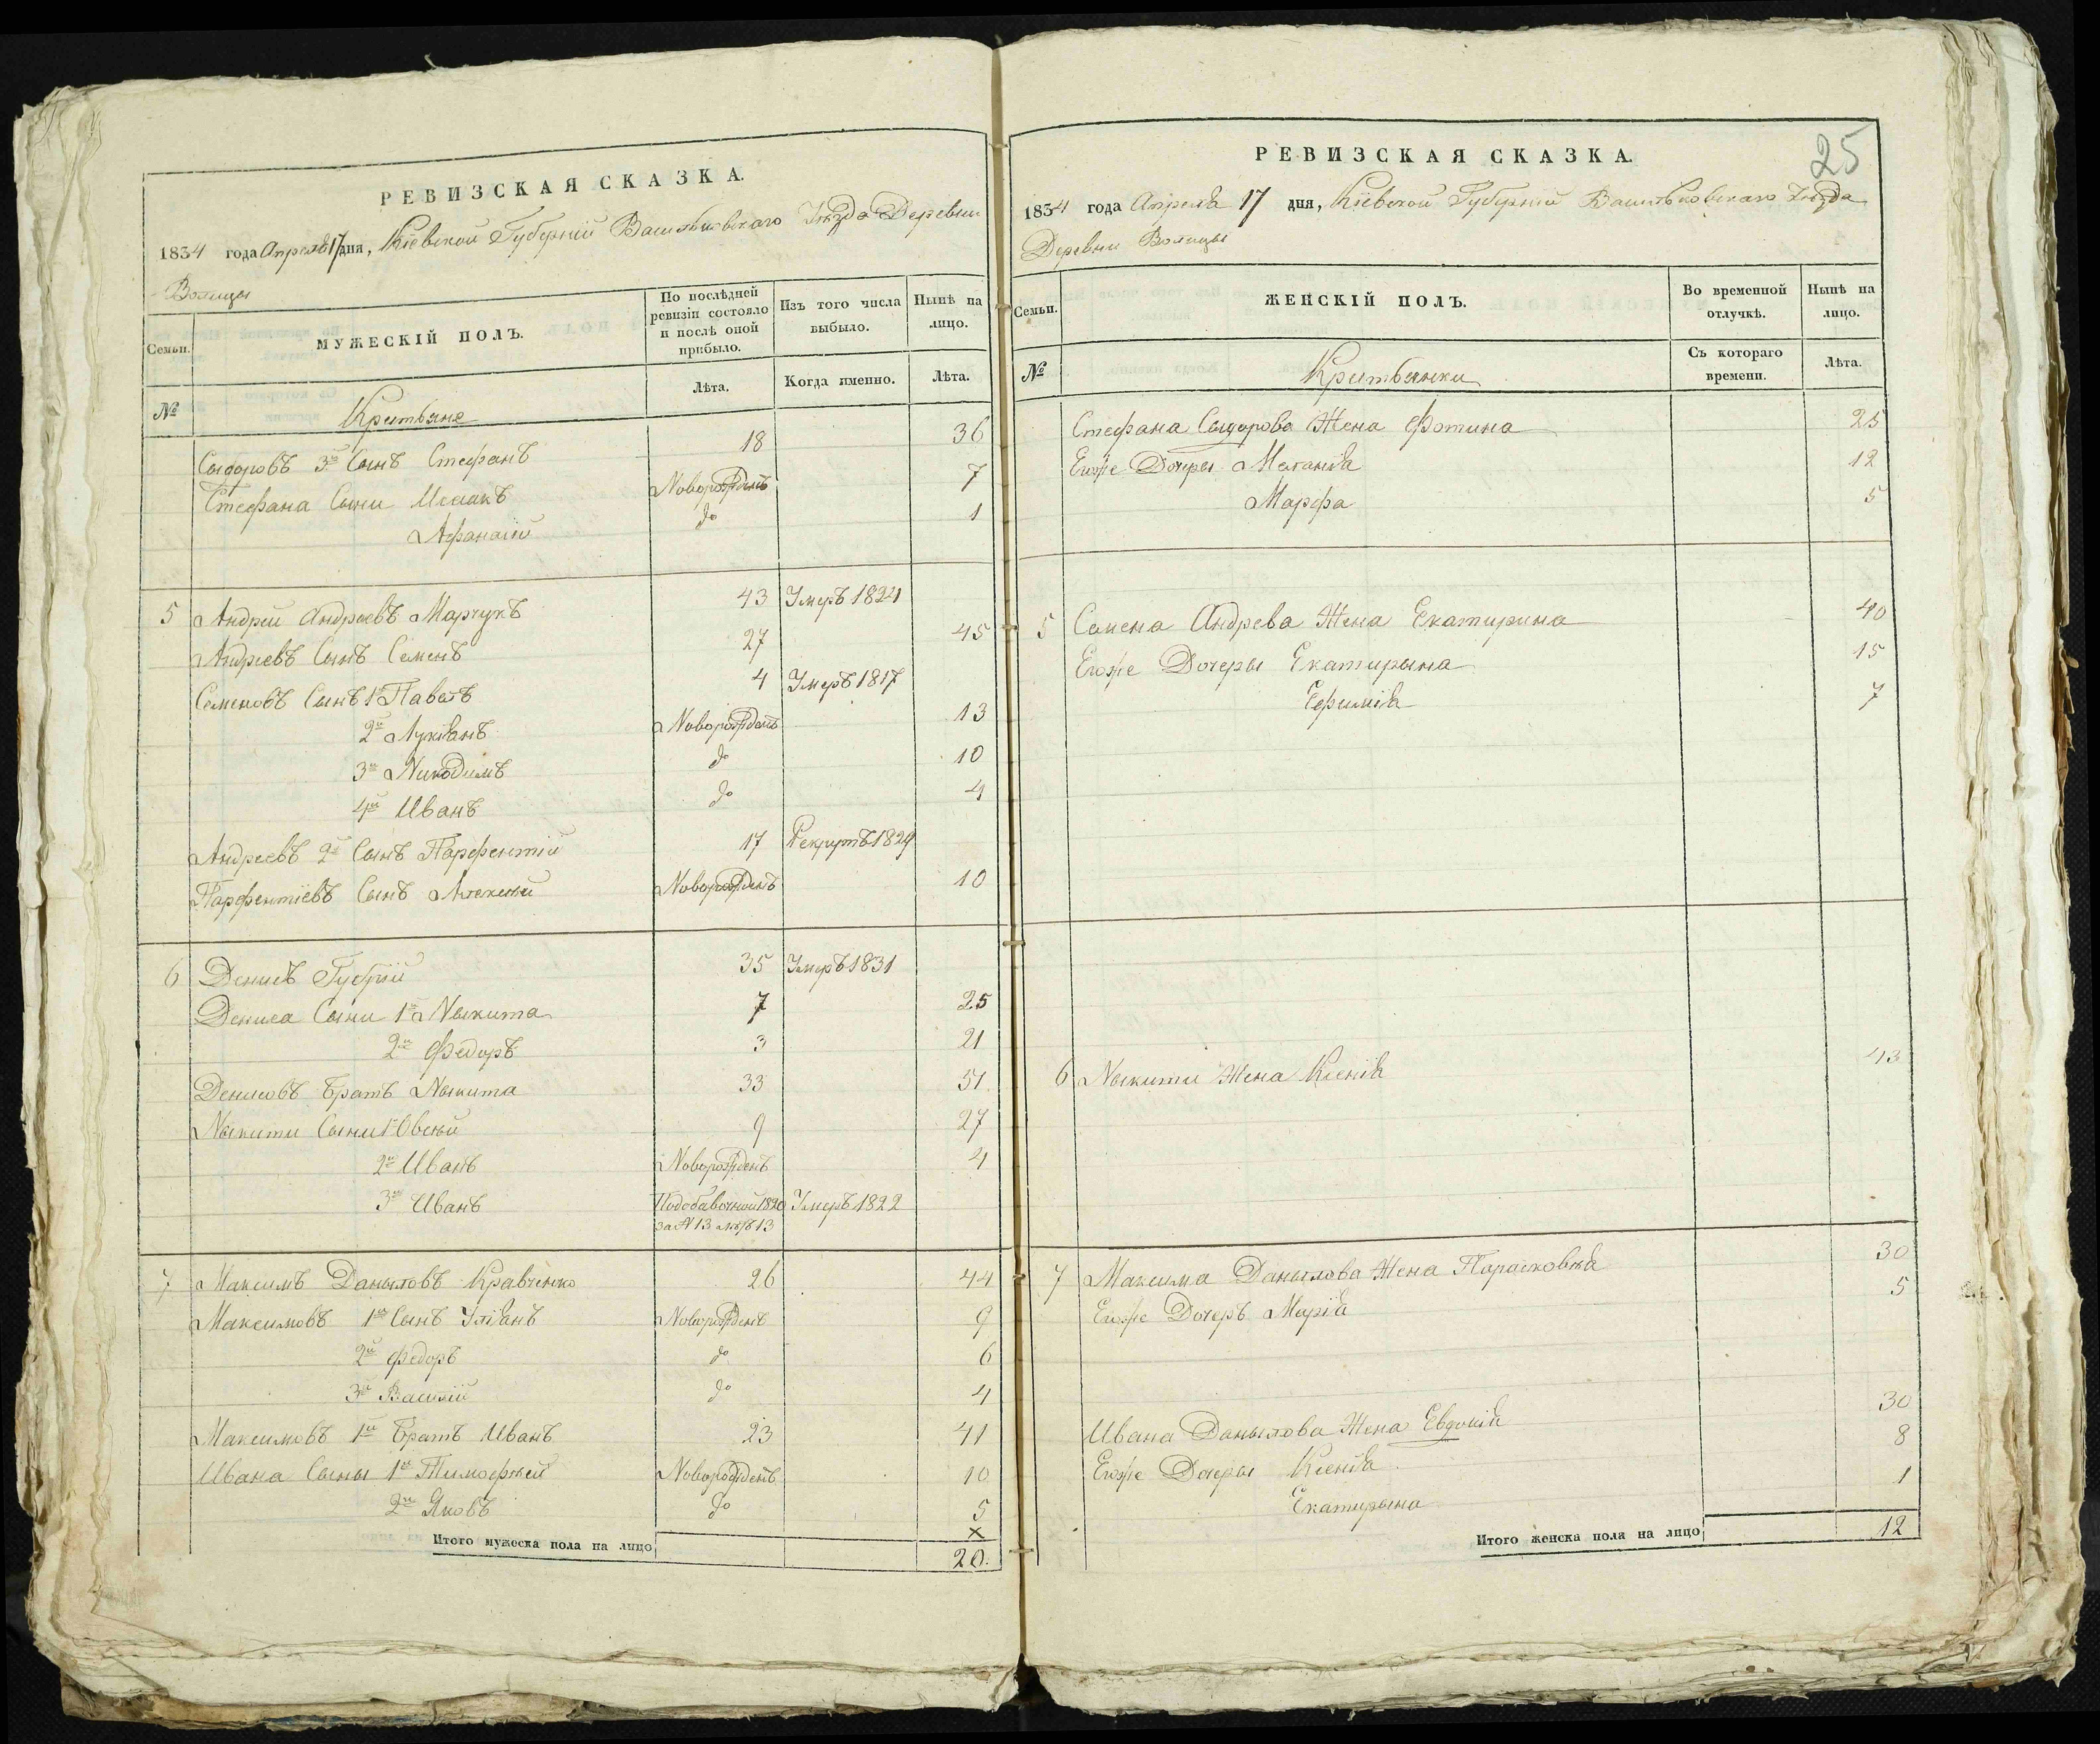 РЕВИЗСКАЯ СКАЗКА.
1834 года Апреля 17 дня, Кіевской Губерніи Васильковскаго Уѣзда Деревни
Волицы
Семьи.
МУЖЕСКІЙ ПОЛЪ.
По послѣдней ревизіи состояло и послѣ оной прибыло.
Изъ того числа выбыло.
Нынѣ на лицо.
№
Крестьяне
Лѣта.
Когда именно.
Лѣта.
Сыдоровъ 3й Сынъ Стефанъ 18 36
Стефана Сыни Исаакъ Новорожденъ 7
Афанасій до 1
5 Андрей Андреевъ Марчукъ 43 Умеръ 1824
Андреевъ Сынъ Семенъ 27 45
Семеновъ Сынъ 1й Павелъ 4 Умеръ 1817
2й Лукіанъ Новорожденъ 13
3й Никодимъ до 10
4й Иванъ до 4
Андреевъ 2й Сынъ Парфентій 17 Рекрутъ 1829
Парфентіевъ Сынъ Алексѣй Новорожденъ 10
6 Денисъ Губрій 35 Умеръ 1831
Дениса Сыни 1й Ныкита 7 25
2й Федоръ 3 21
Денисовъ Братъ Ныкита 33 51
Ныкити Сыни 1й Овсѣй 9 27
2й Иванъ Новорожденъ 4
3й Иванъ Подобавочной 1820 Умеръ 1822
за № 13 лѣтъ 13
7 Максимъ Даныловъ Кравченко 26 44
Максимовъ 1й Сынъ Уліанъ Новорожденъ 9
2й Федоръ до 6
3й Василій до 4
Максимовъ 1й Братъ Иванъ 23 41
Ивана Сыны 1й Тимофѣй Новорожденъ 10
2й Яковъ до 5
Итого мужеска пола на лицо 20.
25
РЕВИЗСКАЯ СКАЗКА.
1834 года Апреля 17 дня, Кіевской Губерніи Васильковскаго Уѣзда
Деревни Волицы
Семьи.
ЖЕНСКІЙ ПОЛЪ.
Во временной отлучкѣ.
Нынѣ на лицо.
№
Крестьянки
Съ котораго времени.
Лѣта.
Стефана Сыдорова Жена Фотина 25
Егоже Дочеры Маланія 12
Марфа 5
5 Семена Андрева Жена Екатирина 40
Егоже Дочеры Екатирына 15
Ефимія 7
6 Ныкити Жена Ксенія 43
7 Максима Данылова Жена Парасковія 30
Егоже Дочеръ Марія 5
Ивана Данылова Жена Евдокія 30
Егоже Дочеры Ксенія 8
Екатирына 1
Итого женска пола на лицо 12